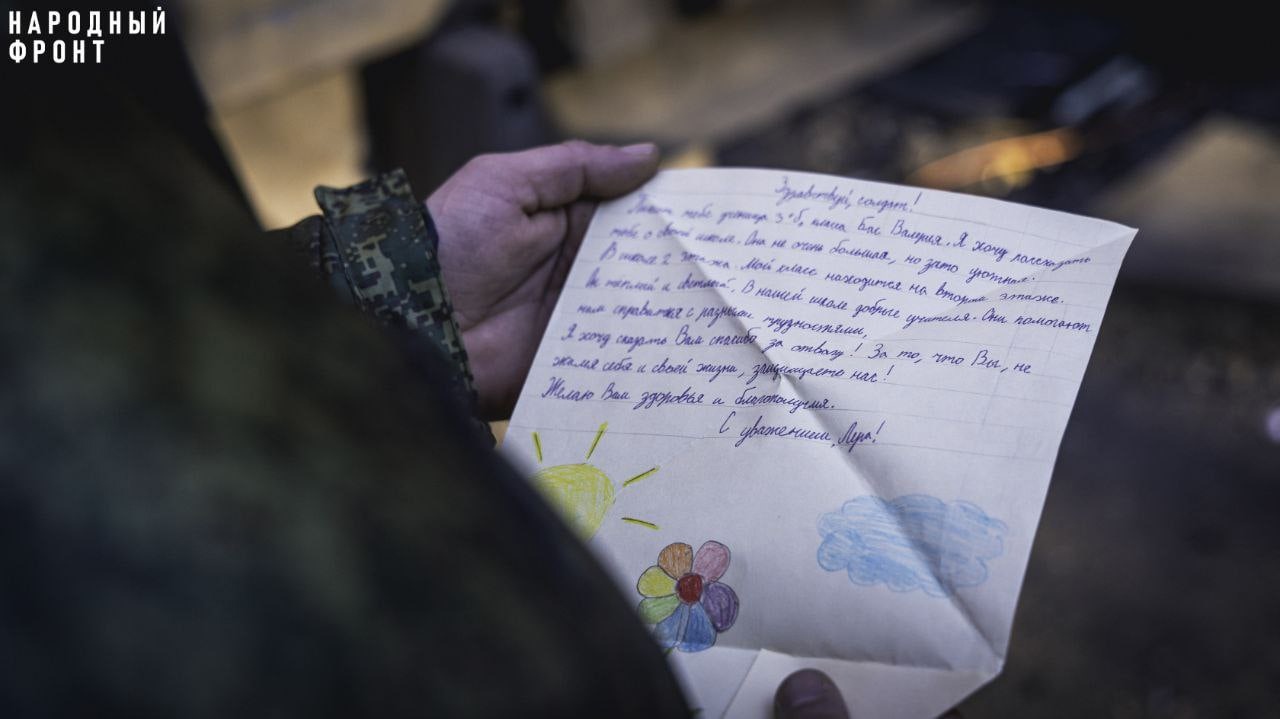 НАРОДНЫЙ
ФРОНТ
Здравствуй, солдат!
Пишет тебе ученица 3 "б" класса Бас Валерия. Я хочу рассказать
тебе о своей школе. Она не очень большая, но зато уютная.
В школе 2 этажа. Мой класс находится на втором этаже.
Он тёплый и светлый. В нашей школе добрые учителя. Они помогают
нам справится с разными трудностями.
Я хочу сказать Вам спасибо за отвагу! За то, что Вы, не
жалея себя и своей жизни, защищаете нас!
Желаю Вам здоровья и благополучия.
С уважением, Лера!